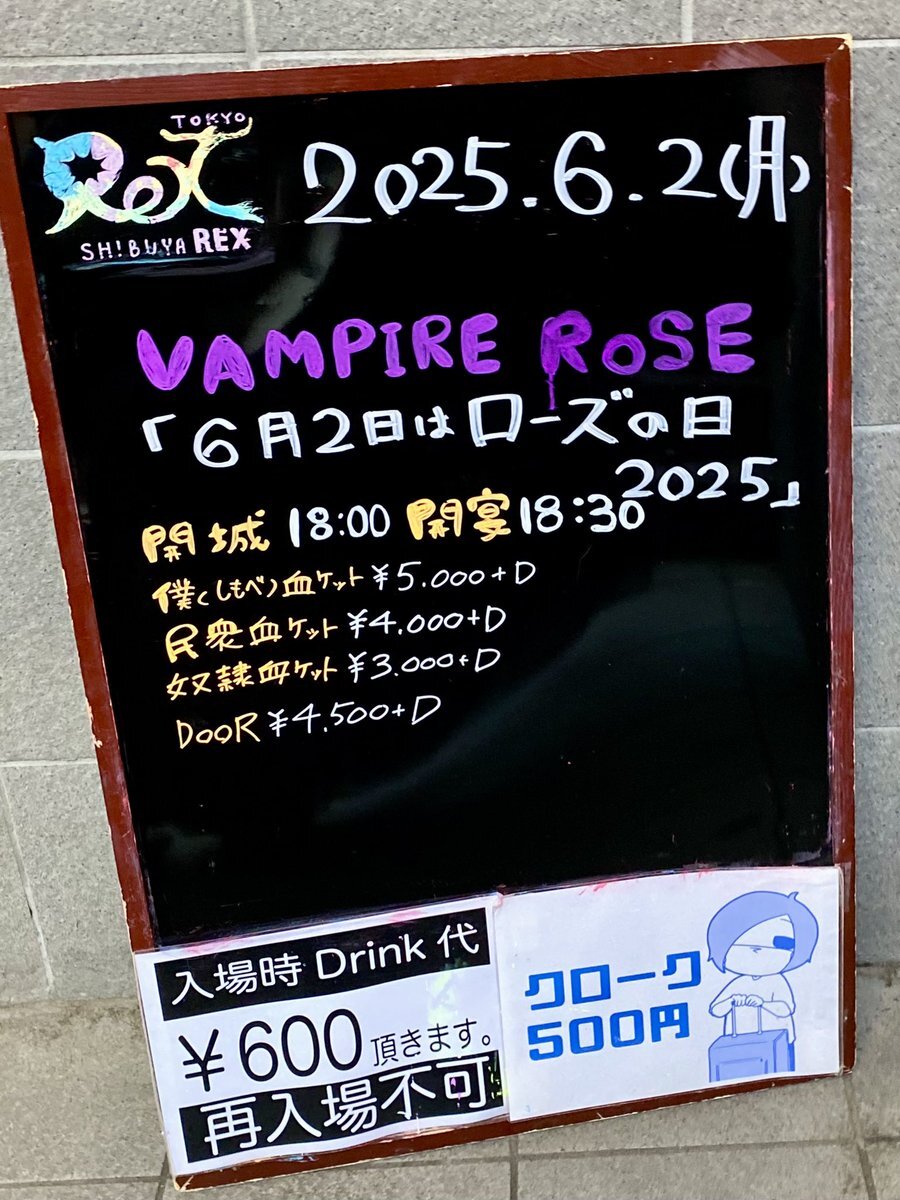 TOKYO
ReX
SH!BUYA REX
2025.6.2(月)
VAMPIRE ROSE
「6月2日はローズの日
2025」
開城 18:00 開宴18:30
僕(しもべ)血ケット ¥5.000+D
民衆血ケット ¥4.000+D
奴隷血ケット ¥3.000+D
DOOR ¥4.500+D
入場時 Drink 代
¥600 頂きます。
再入場不可
クローク
500円